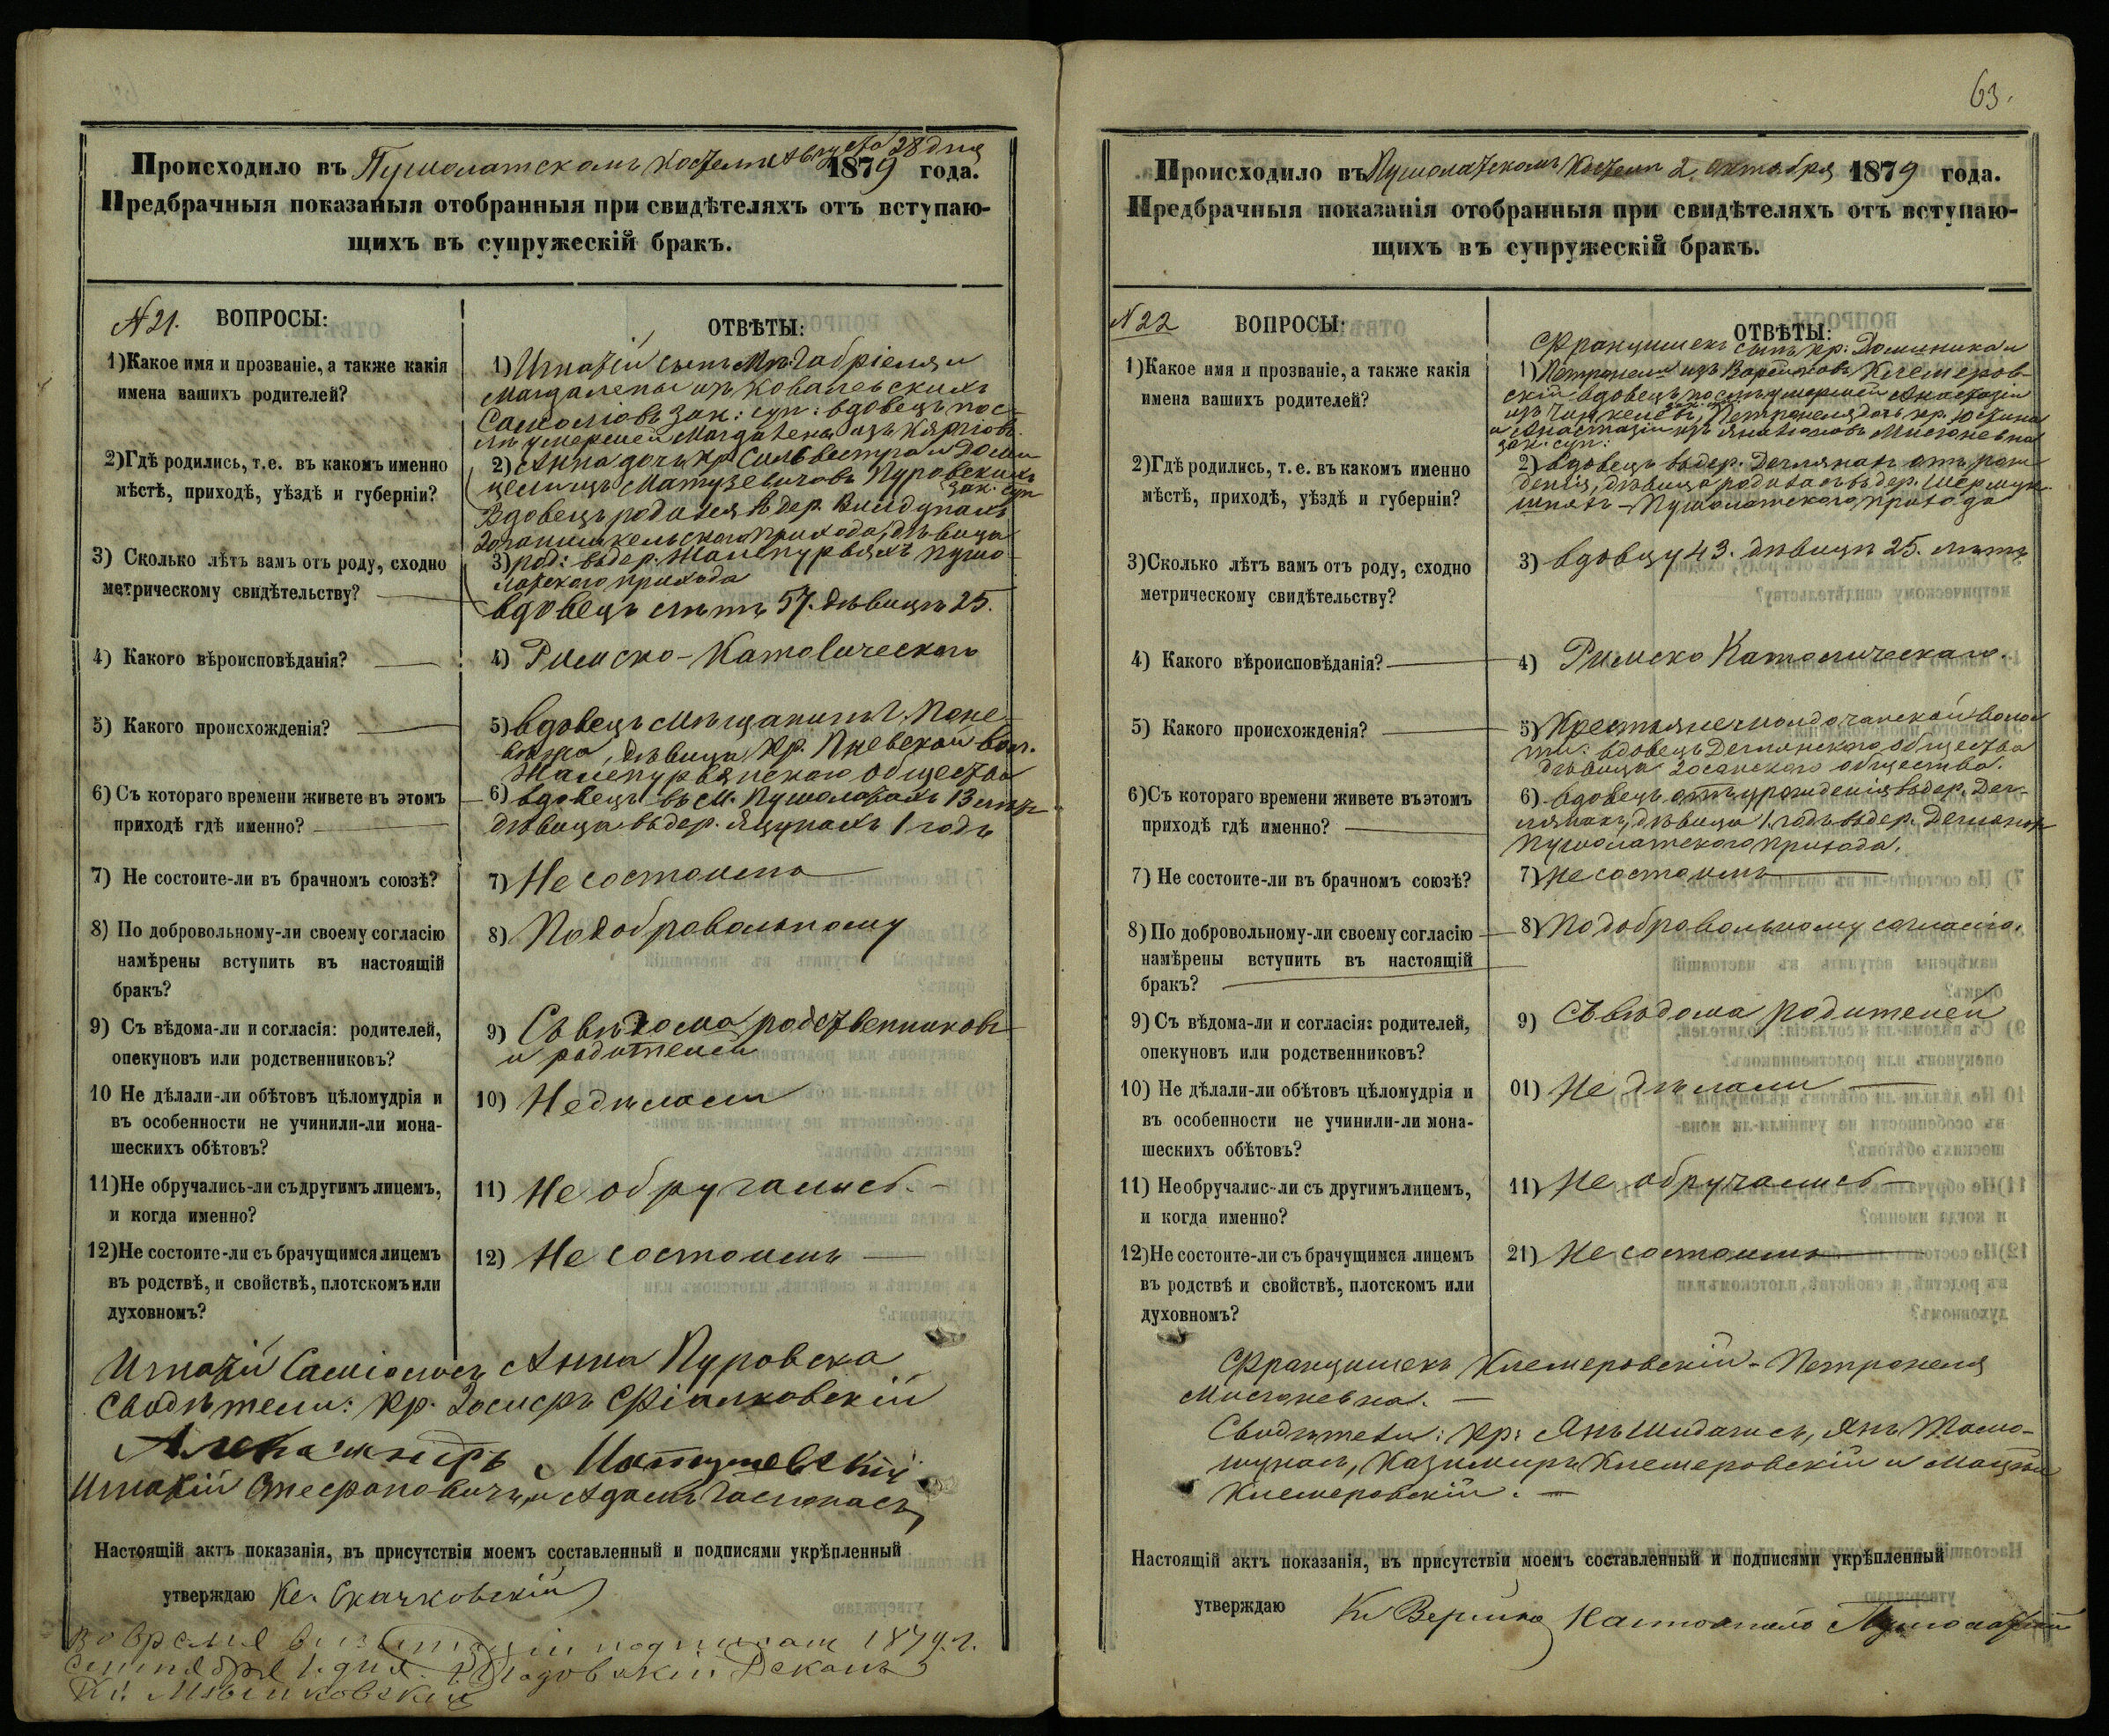 Происходило въ Пушолатскомъ костелѣ Августа 28 дня 1879 года.
Предбрачныя показаныя отобранныя при свидѣтеляхъ отъ вступаю-
щихъ въ супружескій бракъ.
N 21. ВОПРОСЫ:
ОТВѢТЫ:
1)Какое имя и прозваніе, а также какія
имена вашихъ родителей?
1) Игнатій сынъ Габріеля и
Магдалены изъ Ковалевскихъ
зак: суп: вдовецъ пос-
лѣ умершей Магдалены изъ
2)Гдѣ родились, т.е. въ какомъ именно
мѣстѣ, приходѣ, уѣздѣ и губерніи?
2) Анна дочь кр. Сильвестра и
изъ Матузевичовъ Пуровскихъ
зак. суп
Вдовецъ родился въ дер.
прихода, дѣвица
3) Сколько лѣтъ вамъ отъ роду, сходно
метрическому свидѣтельству?
3) род: въ дер. Пушо-
латского прихода
вдовецъ лѣтъ 57. дѣвицѣ 25.
4) Какого вѣроисповѣданія?
4) Римско-Католическаго
5) Какого происхожденія?
5) вдовецъ мѣщанинъ г. Поне-
вѣжа, дѣвица кр. вол.
общества
6) Съ котораго времени живете въ этомъ
приходѣ гдѣ именно?
6) вдовецъ въ м. Пушолатахъ 13 лѣтъ
дѣвица въ дер. 1 годъ
7) Не состоите-ли въ брачномъ союзѣ?
7) Не состоимъ
8) По добровольному-ли своему согласію
намѣрены вступить въ настоящій
бракъ?
8) По добровольному
9) Съ вѣдома-ли и согласія: родителей,
опекуновъ или родственниковъ?
9) Съ вѣдома родственниковъ
и родителей
10 Не дѣлали-ли обѣтовъ цѣломудрія и
въ особенности не учинили-ли мона-
шескихъ обѣтовъ?
10) Не дѣлали
11)Не обручались-ли съ другимъ лицемъ,
и когда именно?
11) Не обручались.-
12)Не состоите-ли съ брачущимся лицемъ
въ родствѣ, и свойствѣ, плотскомъ или
духовномъ?
12) Не состоимъ
Игнатій Анна Пуровска
Свидѣтели: кр. Фіалковскій
Игнатій Стефановичъ, и Адамъ
Настоящій актъ показанія, въ присутствіи моемъ составленный и подписями укрѣпленный
утверждаю Кс. Скачковскій
во время визитаціи 1879 г.
сентября дня. Деканъ
Кс.
63.
Происходило въ Пушолатскомъ костелѣ 2. октября 1879 года.
Предбрачныя показанія отобранныя при свидѣтеляхъ отъ вступаю-
щихъ въ супружескій бракъ.
N 22 ВОПРОСЫ:
ОТВѢТЫ:
1)Какое имя и прозваніе, а также какія
имена вашихъ родителей?
Францишекъ сынъ кр: Доминика и
1) Петронели изъ Клемеров-
скій вдовецъ послѣ умершей Анастазіи
изъ Петронеля дочь кр. Юстина
и Анастазіи изъ
зак: суп:
2)Гдѣ родились, т. е. въ какомъ именно
мѣстѣ, приходѣ, уѣздѣ и губерніи?
2) вдовецъ въ дер. отъ рож-
денія, дѣвица родилась въ дер.
Пушолатского прихода
3)Сколько лѣтъ вамъ отъ роду, сходно
метрическому свидѣтельству?
3) вдовцу 43. дѣвицѣ 25. лѣтъ
4) Какого вѣроисповѣданія?
4) Римско Католическаго.
5) Какого происхожденія?
5) Крестьяне волос-
ти: вдовецъ общества
дѣвица общества.
6)Съ котораго времени живете въ этомъ
приходѣ гдѣ именно?
6) вдовецъ отъ урожденія въ дер.
дѣвица 1. годъ въ дер.
Пушолатского прихода.
7) Не состоите-ли въ брачномъ союзѣ?
7) Не состоимъ
8) По добровольному-ли своему согласію
намѣрены вступить въ настоящій
бракъ?
8) По добровольному согласію.
9) Съ вѣдома-ли и согласія: родителей,
опекуновъ или родственниковъ?
9) Съ вѣдома родителей
10) Не дѣлали-ли обѣтовъ цѣломудрія и
въ особенности не учинили-ли мона-
шескихъ обѣтовъ?
01) Не дѣлали
11) Необручалис-ли съ другимъ лицемъ,
и когда именно?
11) Не обручались
12)Не состоите-ли съ брачущимся лицемъ
въ родствѣ и свойствѣ, плотскомъ или
духовномъ?
21) Не состоимъ
Францишекъ Клемеровскій - Петронеля
Свидѣтели: кр: Янъ Янъ
Казимиръ Клемеровскій и
Клемеровскій.
Настоящій актъ показанія, въ присутствіи моемъ составленный и подписями укрѣпленный
утверждаю